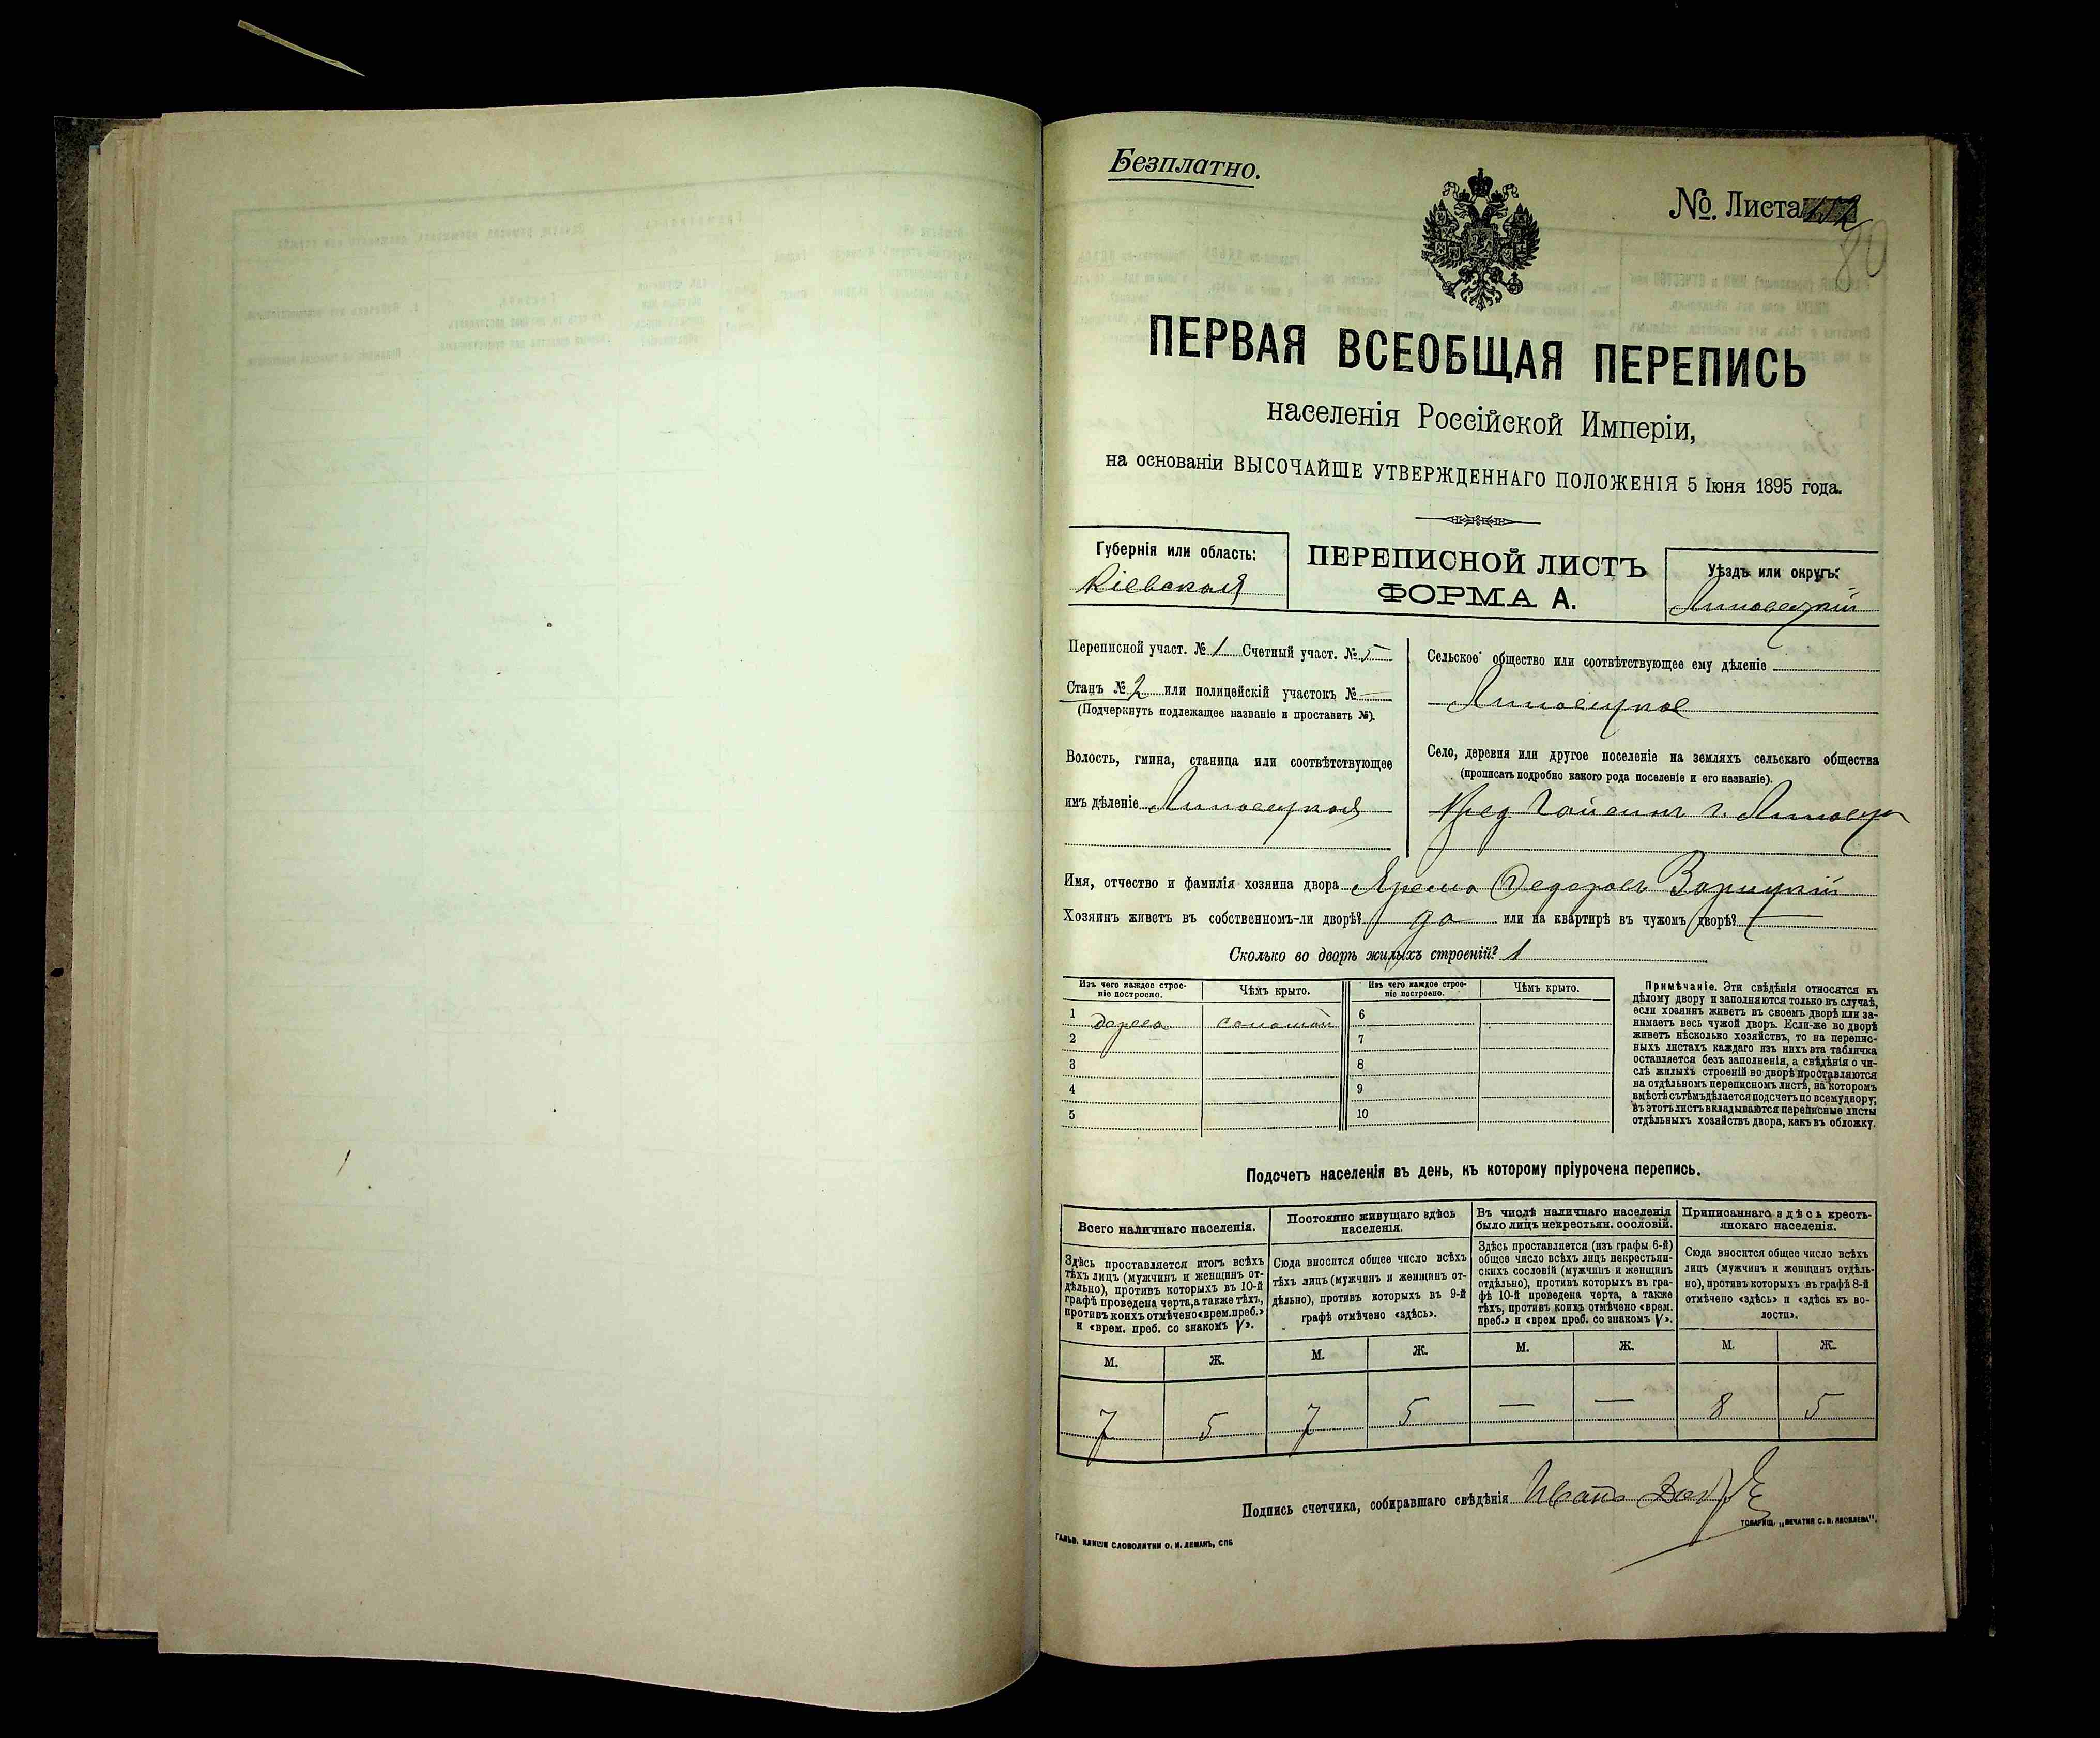 Безплатно.
№. Листа
80
ПЕРВАЯ ВСЕОБЩАЯ ПЕРЕПИСЬ
населенія Россійской Имперіи,
на основаніи ВЫСОЧАЙШЕ УТВЕРЖДЕННАГО ПОЛОЖЕНІЯ 5 Іюня 1895 года.
Губернія или область:
Кіевская
ПЕРЕПИСНОЙ ЛИСТЪ
ФОРМА А.
Уѣздъ или округъ:
Липовецкій
Переписной участ. № 1 Счетный участ. № 5
Станъ № 2 или полицейскій участокъ № —
(Подчеркнуть подлежащее названіе и проставить №).
Волость, гмина, станица или соотвѣтствующее
имъ дѣленіе Липовецкая
Сельское общество или соотвѣтствующее ему дѣленіе
Липовецкое
Село, деревня или другое поселеніе на земляхъ сельскаго общества
(прописать подробно какого рода поселеніе и его названіе).
г. Липовца
Имя, отчество и фамилія хозяина двора Ярема Федоровъ Зарицкій
Хозяинъ живетъ въ собственномъ-ли дворѣ? да или на квартирѣ въ чужомъ дворѣ? —
Сколько во дворѣ жилыхъ строеній? 1
Изъ чего каждое строе-
ніе построено.
Чѣмъ крыто.
Изъ чего каждое строе-
ніе построено.
Чѣмъ крыто.
1 дерева соломой
2
3
4
5
6
7
8
9
10
Примѣчаніе. Эти свѣдѣнія относятся къ
цѣлому двору и заполняются только въ случаѣ,
если хозяинъ живетъ въ своемъ дворѣ или за-
нимаетъ весь чужой дворъ. Если-же во дворѣ
живетъ нѣсколько хозяйствъ, то на перепис-
ныхъ листахъ каждаго изъ нихъ эта табличка
оставляется безъ заполненія, а свѣдѣнія о чи-
слѣ жилыхъ строеній во дворѣ проставляются
на отдѣльномъ переписномъ листѣ, на которомъ
вмѣстѣ съ тѣмъ дѣлается подсчетъ по всему двору;
въ этотъ листъ вкладываются переписные листы
отдѣльныхъ хозяйствъ двора, какъ въ обложку.
Подсчетъ населенія въ день, къ которому пріурочена перепись.
Всего наличнаго населенія.
Здѣсь проставляется итогъ всѣхъ
тѣхъ лицъ (мужчинъ и женщинъ от-
дѣльно), противъ которыхъ въ 10-й
графѣ проведена черта, а также тѣхъ,
противъ коихъ отмѣчено «врем. преб.»
и «врем. преб. со знакомъ V».
Постоянно живущаго здѣсь
населенія.
Сюда вносится общее число всѣхъ
тѣхъ лицъ (мужчинъ и женщинъ от-
дѣльно), противъ которыхъ въ 9-й
графѣ отмѣчено «здѣсь».
Въ числѣ наличнаго населенія
было лицъ некрестьян. сословій.
Здѣсь проставляется (изъ графы 6-й)
общее число всѣхъ лицъ некрестьян-
скихъ сословій (мужчинъ и женщинъ
отдѣльно), противъ которыхъ въ гра-
фѣ 10-й проведена черта, а также
тѣхъ, противъ коихъ отмѣчено «врем.
преб.» и «врем преб. со знакомъ V».
Приписаннаго здѣсь кресть-
янскаго населенія.
Сюда вносится общее число всѣхъ
лицъ (мужчинъ и женщинъ отдѣль-
но), противъ которыхъ въ графѣ 8-й
отмѣчено «здѣсь» и «здѣсь къ во-
лости».
М. Ж. М. Ж. М. Ж. М. Ж.
7 5 7 5 — — 8 5
Подпись счетчика, собиравшаго свѣдѣнія Иванъ
ГАЛЬВ. КЛИШЕ СЛОВОЛИТНИ О. И. ЛЕМАНЪ, СПБ
ТОВАРИЩ. „ПЕЧАТНЯ С. П. ЯКОВЛЕВА".